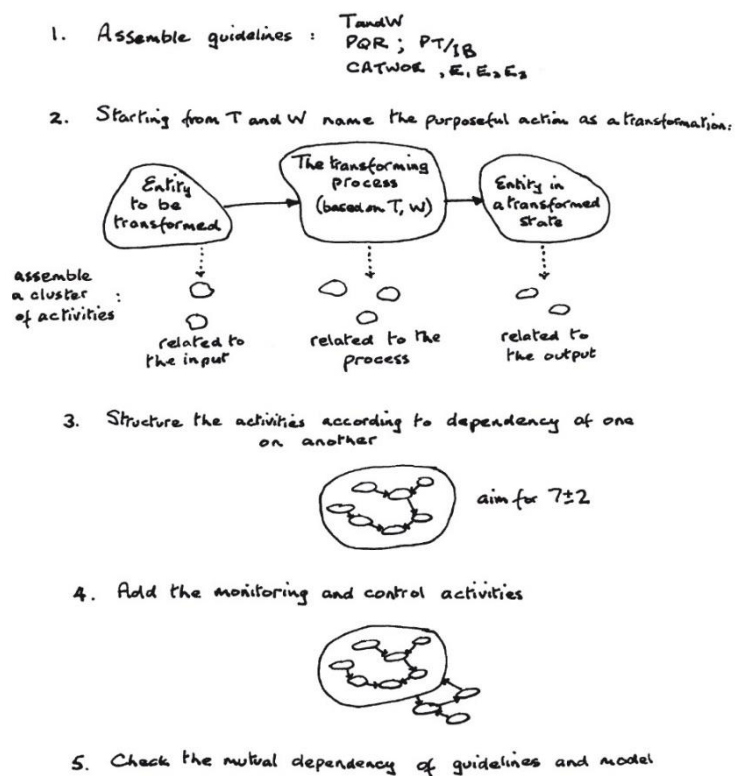 1. Assemble guidelines : TandW
PQR ; PT/IB
CATWOE , E₁ E₂ E₃
2. Starting from T and W name the purposeful action as a transformation:
Entity
to be
transformed
The transforming
process
(based on T, W)
Entity in
a transformed
state
assemble
a cluster :
of activities
related to
the input
related to the
process
related to
the output
3. Structure the activities according to dependency of one
on another
aim for 7±2
4. Add the monitoring and control activities
5. Check the mutual dependency of guidelines and model